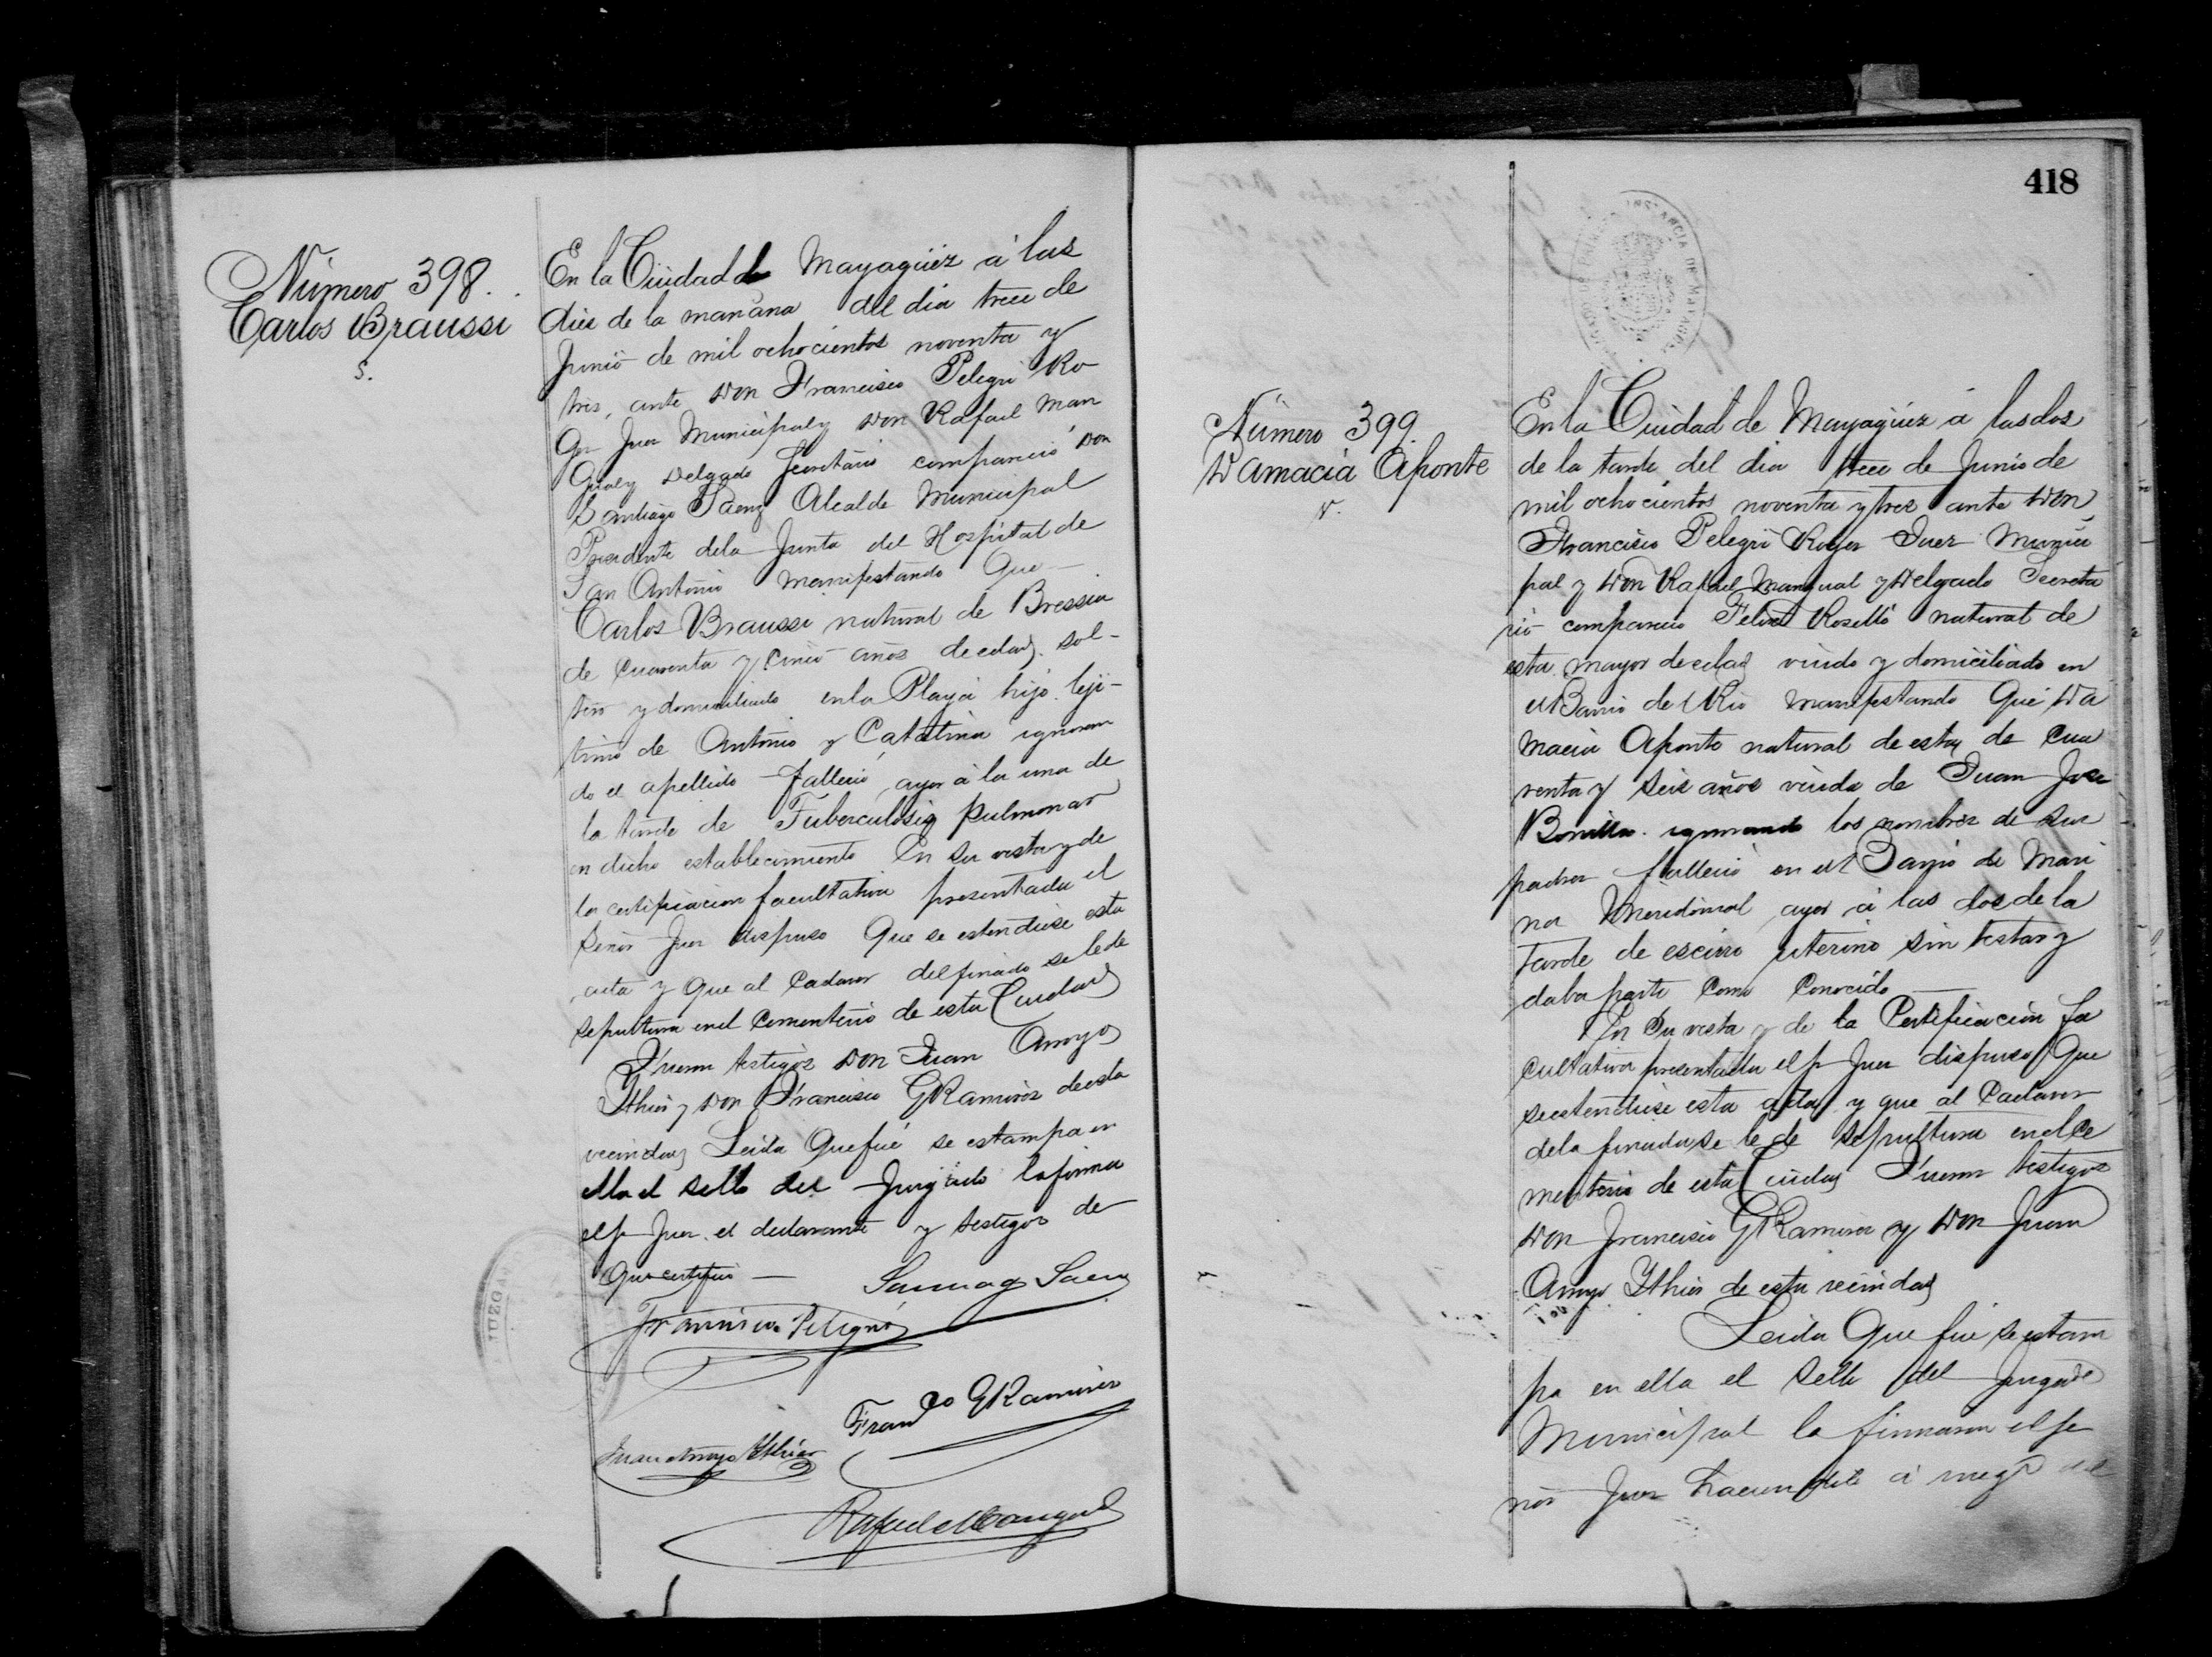 Número 398.
Carlos Braussi
S.
En la Ciudad de Mayagüez á las
diez de la mañana del dia trece de
Junio de mil ochocientos noventa y
tres, ante Don Francisco Pelegri Ro
ger Juez Municipal y Don Rafael Man
gual y Delgado Secretario compareció Don
Santiago Saenz Alcalde Municipal
Presidente dela Junta del Hospital de
San Antonio manifestando Que
Carlos Braussi natural de Bressia
de Cuarenta y cinco años de edad, sol-
tero y domiciliado en la Playa hijo leji-
timo de Antonio y Catalina ignoran
do el apellido falleció ayer á la una de
la tarde de Tuberculosis pulmonar
en dicho establecimiento En su vista y de
la certificacion facultativa presentada el
Señor Juez dispuso Que se estendiese esta
acta y Que al Cadaver del finado se le de
sepultura en el Cementerio de esta Ciudad
Fueron testigos Don Juan Arroyo
Ithier y Don Francisco G Ramirez de esta
vecindad Leida Que fué se estampa en
ella el Sello del Juzgado la firma
el Sr Juez el declarante y testigos de
Que certifico —
Santiago Saenz
Francisco Pelegri
Franco G Ramirez
Juan Arroyo Ithier
Rafael Mangual
JUZGA
418
INSTANCIA DE MAYAGUEZ
Número 399.
Damacia Aponte
V.
En la Ciudad de Mayagüez á las dos
de la tarde del dia trece de Junio de
mil ochocientos noventa y tres ante Don
Francisco Pelegri Roger Juez Munici
pal y Don Rafael Mangual y Delgado Secreta
rio compareció Roselló natural de
esta mayor de edad viudo y domiciliado en
el Barrio del Rio manifestando Que Da
macia Aponte natural de esta de Cua
renta y seis años viuda de Juan José
Bonilla ignorando los nombres de sus
padres falleció en el Barrio de Mari
na Meridional ayer á las dos de la
tarde de escirro uterino sin testar y
daba parte como Conocido
En su vista y de la Certificacion fa
cultativa presentada el Sr Juez dispuso Que
se estendiese esta acta y que al Cadaver
dela finada se le de sepultura en el Ce
menterio de esta Ciudad Fueron testigos
Don Francisco G Ramirez y Don Juan
Arroyo Ithier de esta vecindad
Leida Que fué se estam
pa en ella el Sello del Juzgado
Municipal la firmaron el Se
ñor Juez á ruego del